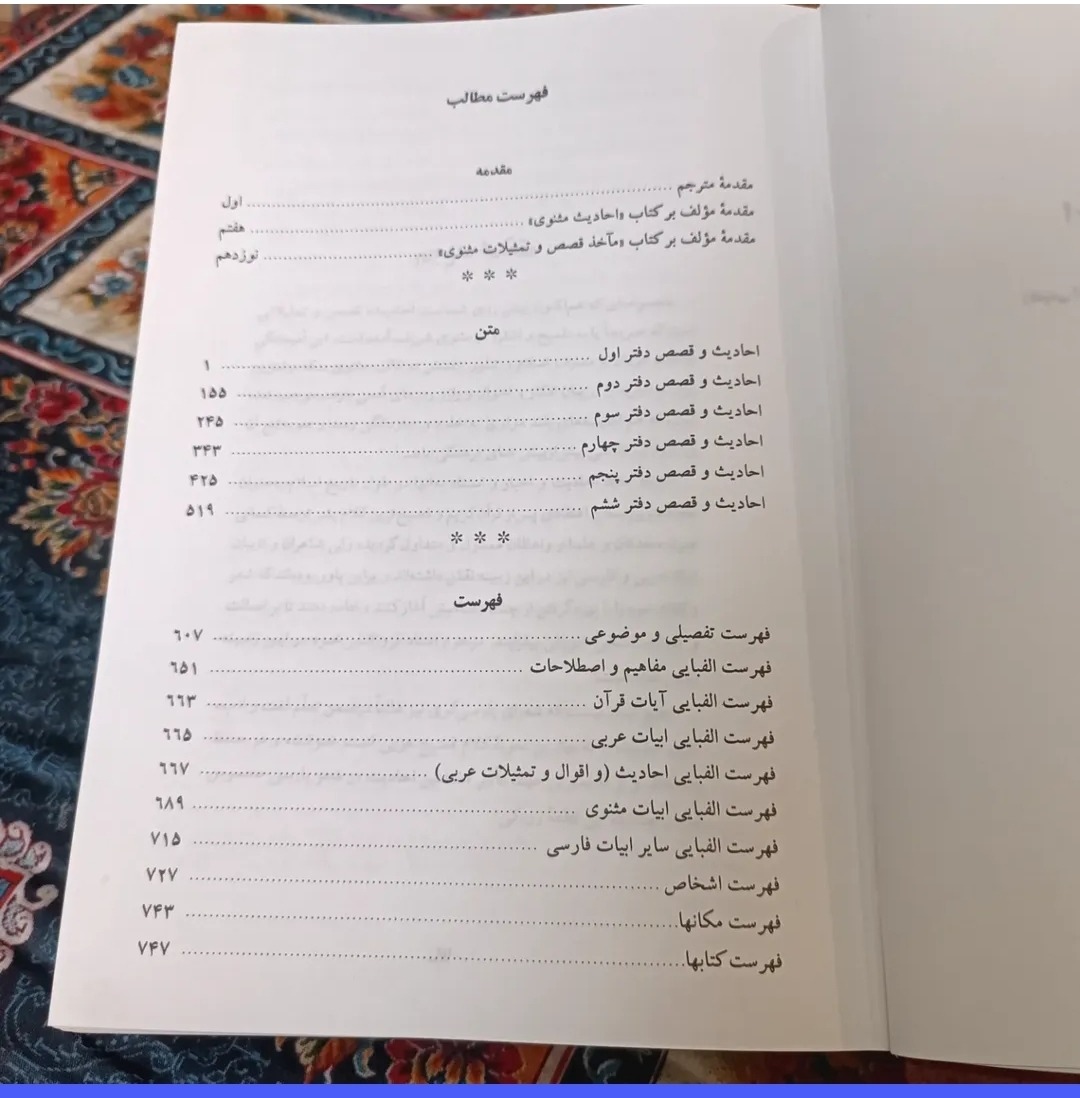 فهرست مطالب
مقدمه
مقدمهٔ مترجم ........ اول
مقدمهٔ مؤلف بر کتاب «احادیث مثنوی» ........ هفتم
مقدمهٔ مؤلف بر کتاب «مآخذ قصص و تمثیلات مثنوی» ........ نوزدهم
* * *
متن
احادیث و قصص دفتر اول ........ ۱
احادیث و قصص دفتر دوم ........ ۱۵۵
احادیث و قصص دفتر سوم ........ ۲۴۵
احادیث و قصص دفتر چهارم ........ ۳۴۳
احادیث و قصص دفتر پنجم ........ ۴۲۵
احادیث و قصص دفتر ششم ........ ۵۱۹
* * *
فهرست
فهرست تفصیلی و موضوعی ........ ۶۰۷
فهرست الفبایی مفاهیم و اصطلاحات ........ ۶۵۱
فهرست الفبایی آیات قرآن ........ ۶۶۳
فهرست الفبایی ابیات عربی ........ ۶۶۵
فهرست الفبایی احادیث (و اقوال و تمثیلات عربی) ........ ۶۶۷
فهرست الفبایی ابیات مثنوی ........ ۶۸۹
فهرست الفبایی سایر ابیات فارسی ........ ۷۱۵
فهرست اشخاص ........ ۷۲۷
فهرست مکانها ........ ۷۴۳
فهرست کتابها ........ ۷۴۷